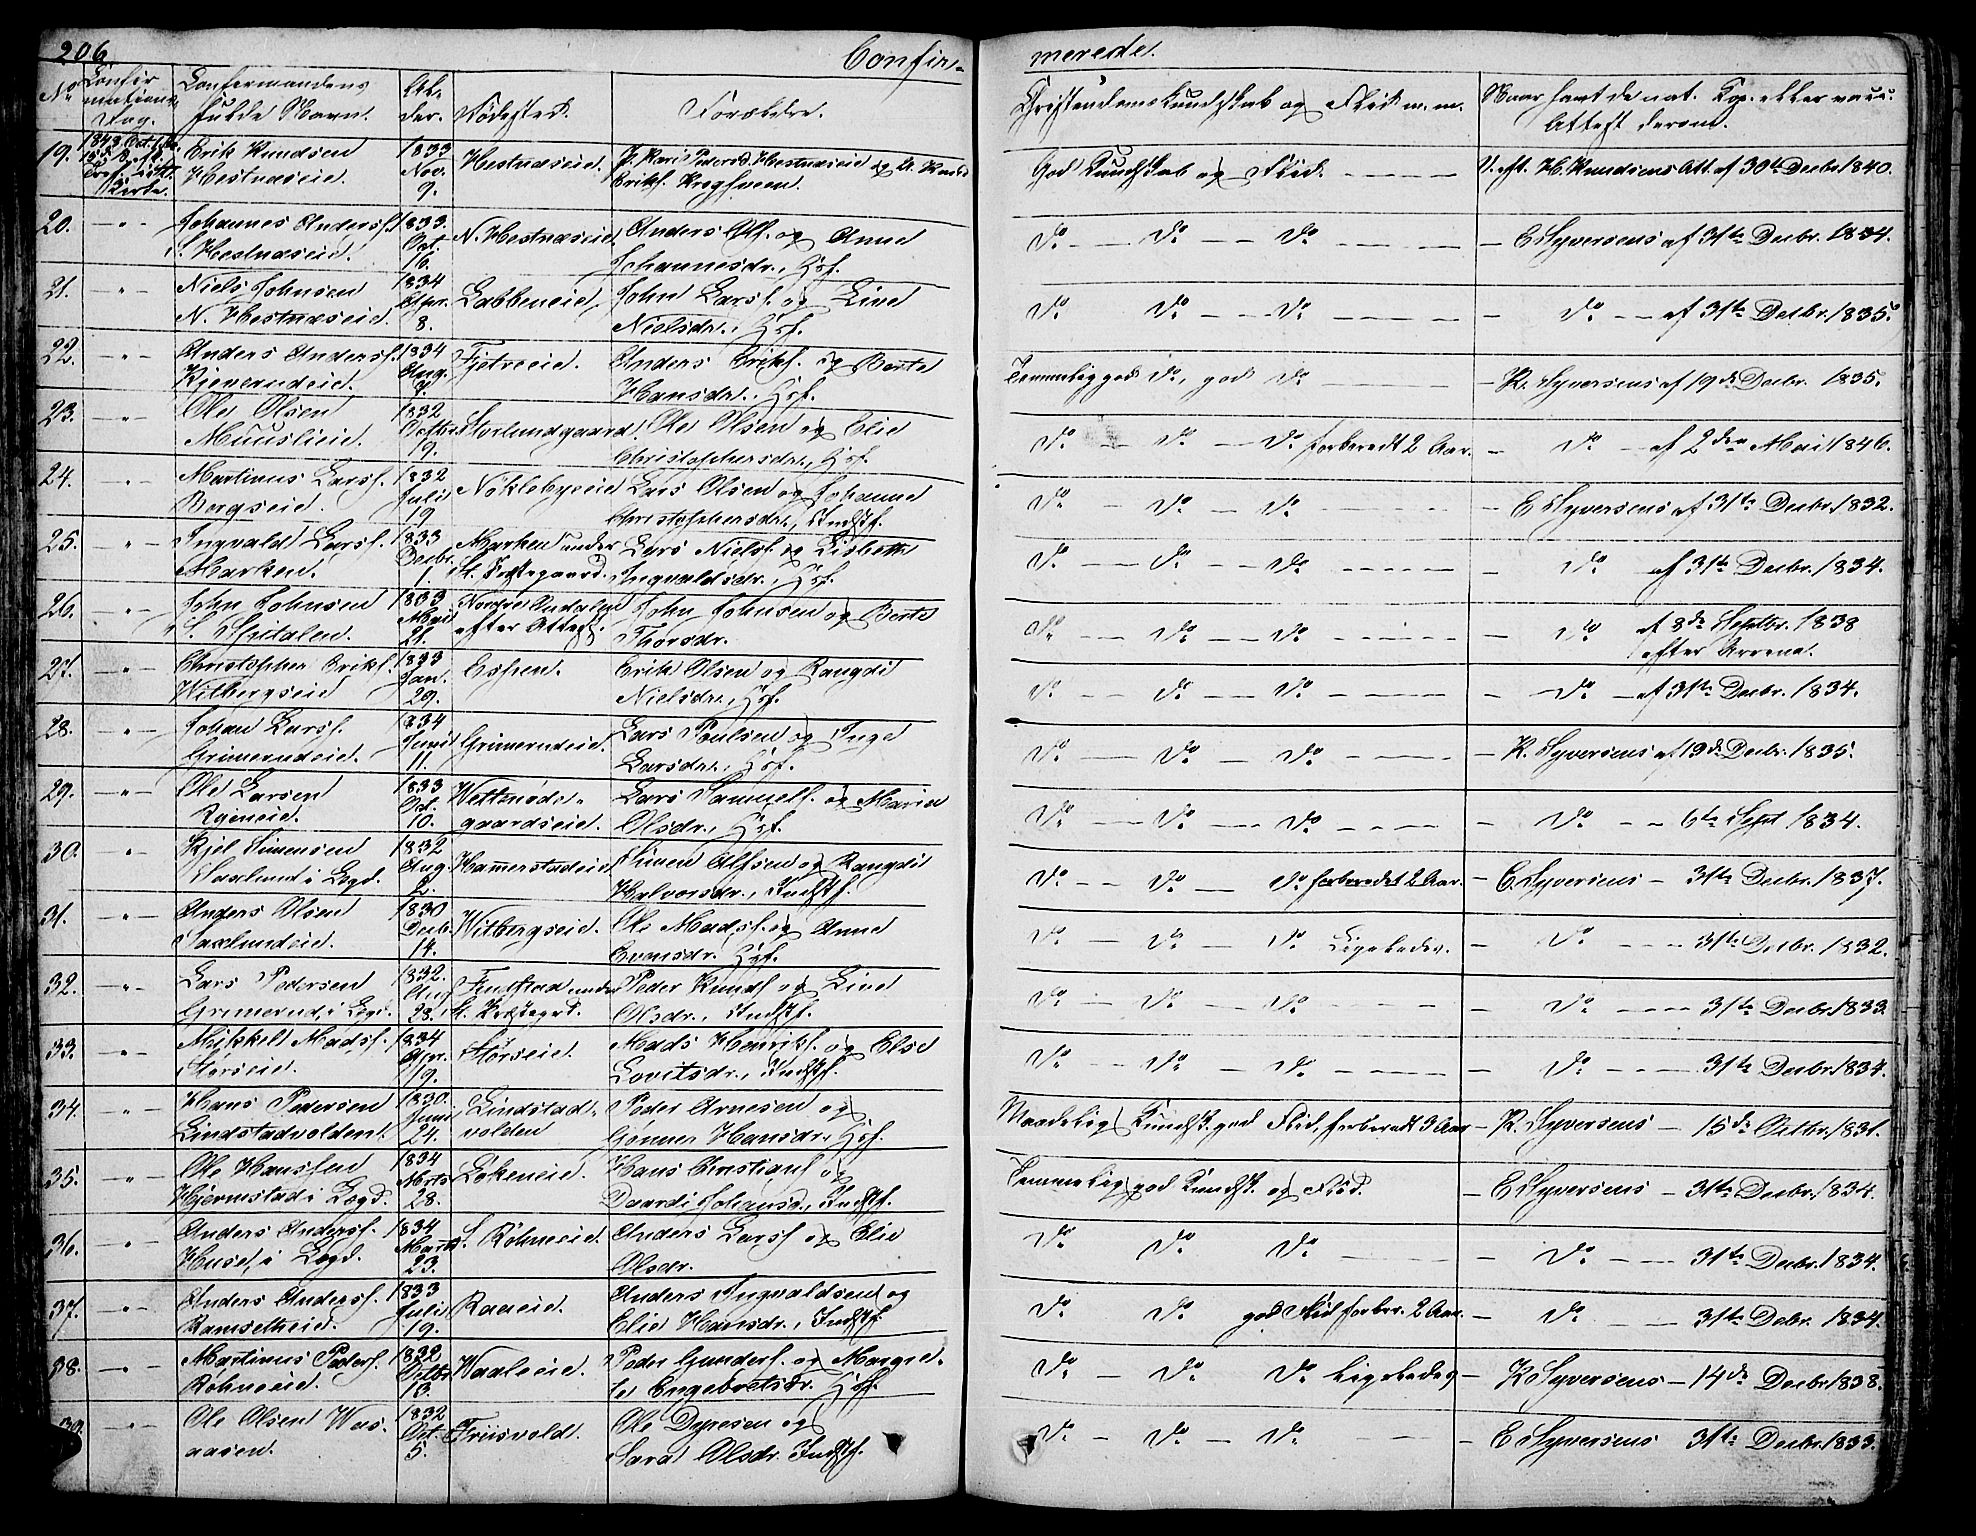 206
Confir-
merede.
No
Confir
mations
Dag.
Confirmandens
fulde Navn.
Al-
der.
Fødested.
Forældre.
Christendoms Kundskab og Flid m. m.
Naar havt de nat. Kop. eller vacc.
Attest derom.
19.
Erik Knudsen
Hestnæseie.
1833
Nov.
9.
Hestnæseie.
P. Kari Pedersd. Hestnæseie og
Eriks.
God Kundskab og Flid.
H. Knudsens Att. af 30te Decbr. 1840.
20.
Johannes Anders.
S. Hestnæseie.
1833.
Oct.
16.
N. Hestnæseie.
Anders Ols. og Anne
Johannesdr., Hsf.
Do Do Do
E. Syversens af 31te Decbr. 1834.
21.
Niels Johnsen
N. Hestnæseie.
1834
Apr.
8.
Labbeneie.
John Lars. og Live
Nielsdr., Hsf.
Do Do Do
Do af 31te Decbr. 1835.
22.
Anders Anders.
Kjenerudeie.
1834
Aug.
7.
Fjetreeie.
Anders Eriks. og Berte
Hansdr., Hsf.
Temmelig god Do, god Do
K. Syversens af 19de Decbr. 1835.
23.
Ole Olsen
Muuslieie.
1832
Octbr.
19.
Storlundgaard.
Ole Olsen og Elie
Christophersdr., Hsf.
Do Do Do forberedt 2 Aar.
Do af 2den Mai 1846.
24.
Martinus Lars.
Bergseie.
1832
Juli
19
Nøklebyeie
Lars Olsen og Johanne
Christophersdr., Indst.
Do Do Do
E. Syversens af 31te Decbr. 1832.
25.
Ingvald Lars.
Marken.
1833
Decbr.
1.
Marken under
St. Præstegaard.
Lars Niels. og Lisbeth
Ingvaldsdr., Hsf.
Do Do Do
Do af 31te Decbr. 1834.
26.
John Johnsen
S. Spitalen.
1833
Mai
21.
Nordre Andalen
efter Attest.
John Johnsen og Berte
Thorsdr.
Do Do Do
Do af 8de Septbr. 1838
efter
27.
Christopher Eriks.
Witbergseie
1833
Jan.
29.
Espen.
Erik Olsen og Rangdi
Nielsdr., Hsf.
Do Do Do
Do af 31te Decbr. 1834.
28.
Johan Lars.
Grimerudeie.
1834
Juni
11.
Grimerudeie.
Lars Poulsen og Inge
Larsdr., Hsf.
Do Do Do
K. Syversens af 19de Decbr. 1835.
29.
Ole Larsen
Ryeneie.
1833
Oct.
10.
Wettnøds-
gaardseie.
Lars Samuels. og Marie
Olsdr., Hsf.
Do Do Do
Do 6te Sept 1834.
30.
Kjel Simensen
Saxlund i Logd.
1832
Aug.
2.
Hamerstadeie
Simen Alfsen og Rangdi
Halvorsdr., Indst.
Do Do Do forberedt 2 Aar.
E. Syversens 31te Decbr. 1837.
31.
Anders Olsen
Saxlundeie.
1830
Decbr.
14.
Witbergseie.
Ole Mads. og Anne
Evensdr., Hsf.
Do Do Do Ligeledes.
Do 31te Decbr. 1832.
32.
Lars Pedersen
Grimerud, i Logd.
1832.
Aug
28.
Findstad under
St. Præstegd.
Peder Knuds og Live
Olsdr., Indst.
Do Do Do
Do 31te Decbr. 1833.
33.
Mikkel Mads.
Størseie.
1834
Apr.
19.
Størseie.
Mads Henriks. og Else
Lovitsdr., Indst.
Do Do Do
Do 31te Decbr. 1834.
34.
Hans Pedersen
Lindstadvolden.
1830.
Juni
24.
Lindstad-
volden
Peder Arnesen og
Gønner Hansdr., Hsf.
Maadelig Kundsk. god Flid, forberedt 3 Aar
K. Syversens 15de Octbr. 1831.
35.
Ole Hanssen
Hjermstad i Logd.
1834
Marts
28.
Løkeneie.
Hans Christians og
Daardi Johansd., Indst.
Temmelig god Kundsk. og Flid.
E. Syversens 31te Decbr. 1834.
36.
Anders Anders.
Huse, i Logd.
1834
Marts
23.
S. Røhneeie.
Anders Lars og Elie
Olsdr.
Do Do Do
Do 31te Decbr. 1834.
37.
Anders Anders.
Ramsetheie.
1833
Juli
19.
Raaeie.
Anders Ingvaldsen og
Elie Hansdr., Indst.
Do Do god Flid forber. 2 Aar.
Do 31te Decbr. 1834.
38.
Martinus Peders.
Røhneeie.
1832
Octbr
13.
Waaleeie.
Peder Gunders. og Margre-
te Engebretsdr. Hsf.
Do Do Do ligeledes
K. Syversens 14de Decbr. 1838.
39.
Ole Olsen Wos-
aasen.
1832
Oct.
5.
Friisvold.
Ole Dyresen og
Sara Olsdr. Indst.
Do Do Do
E. Syversens 31te Decbr. 1833.